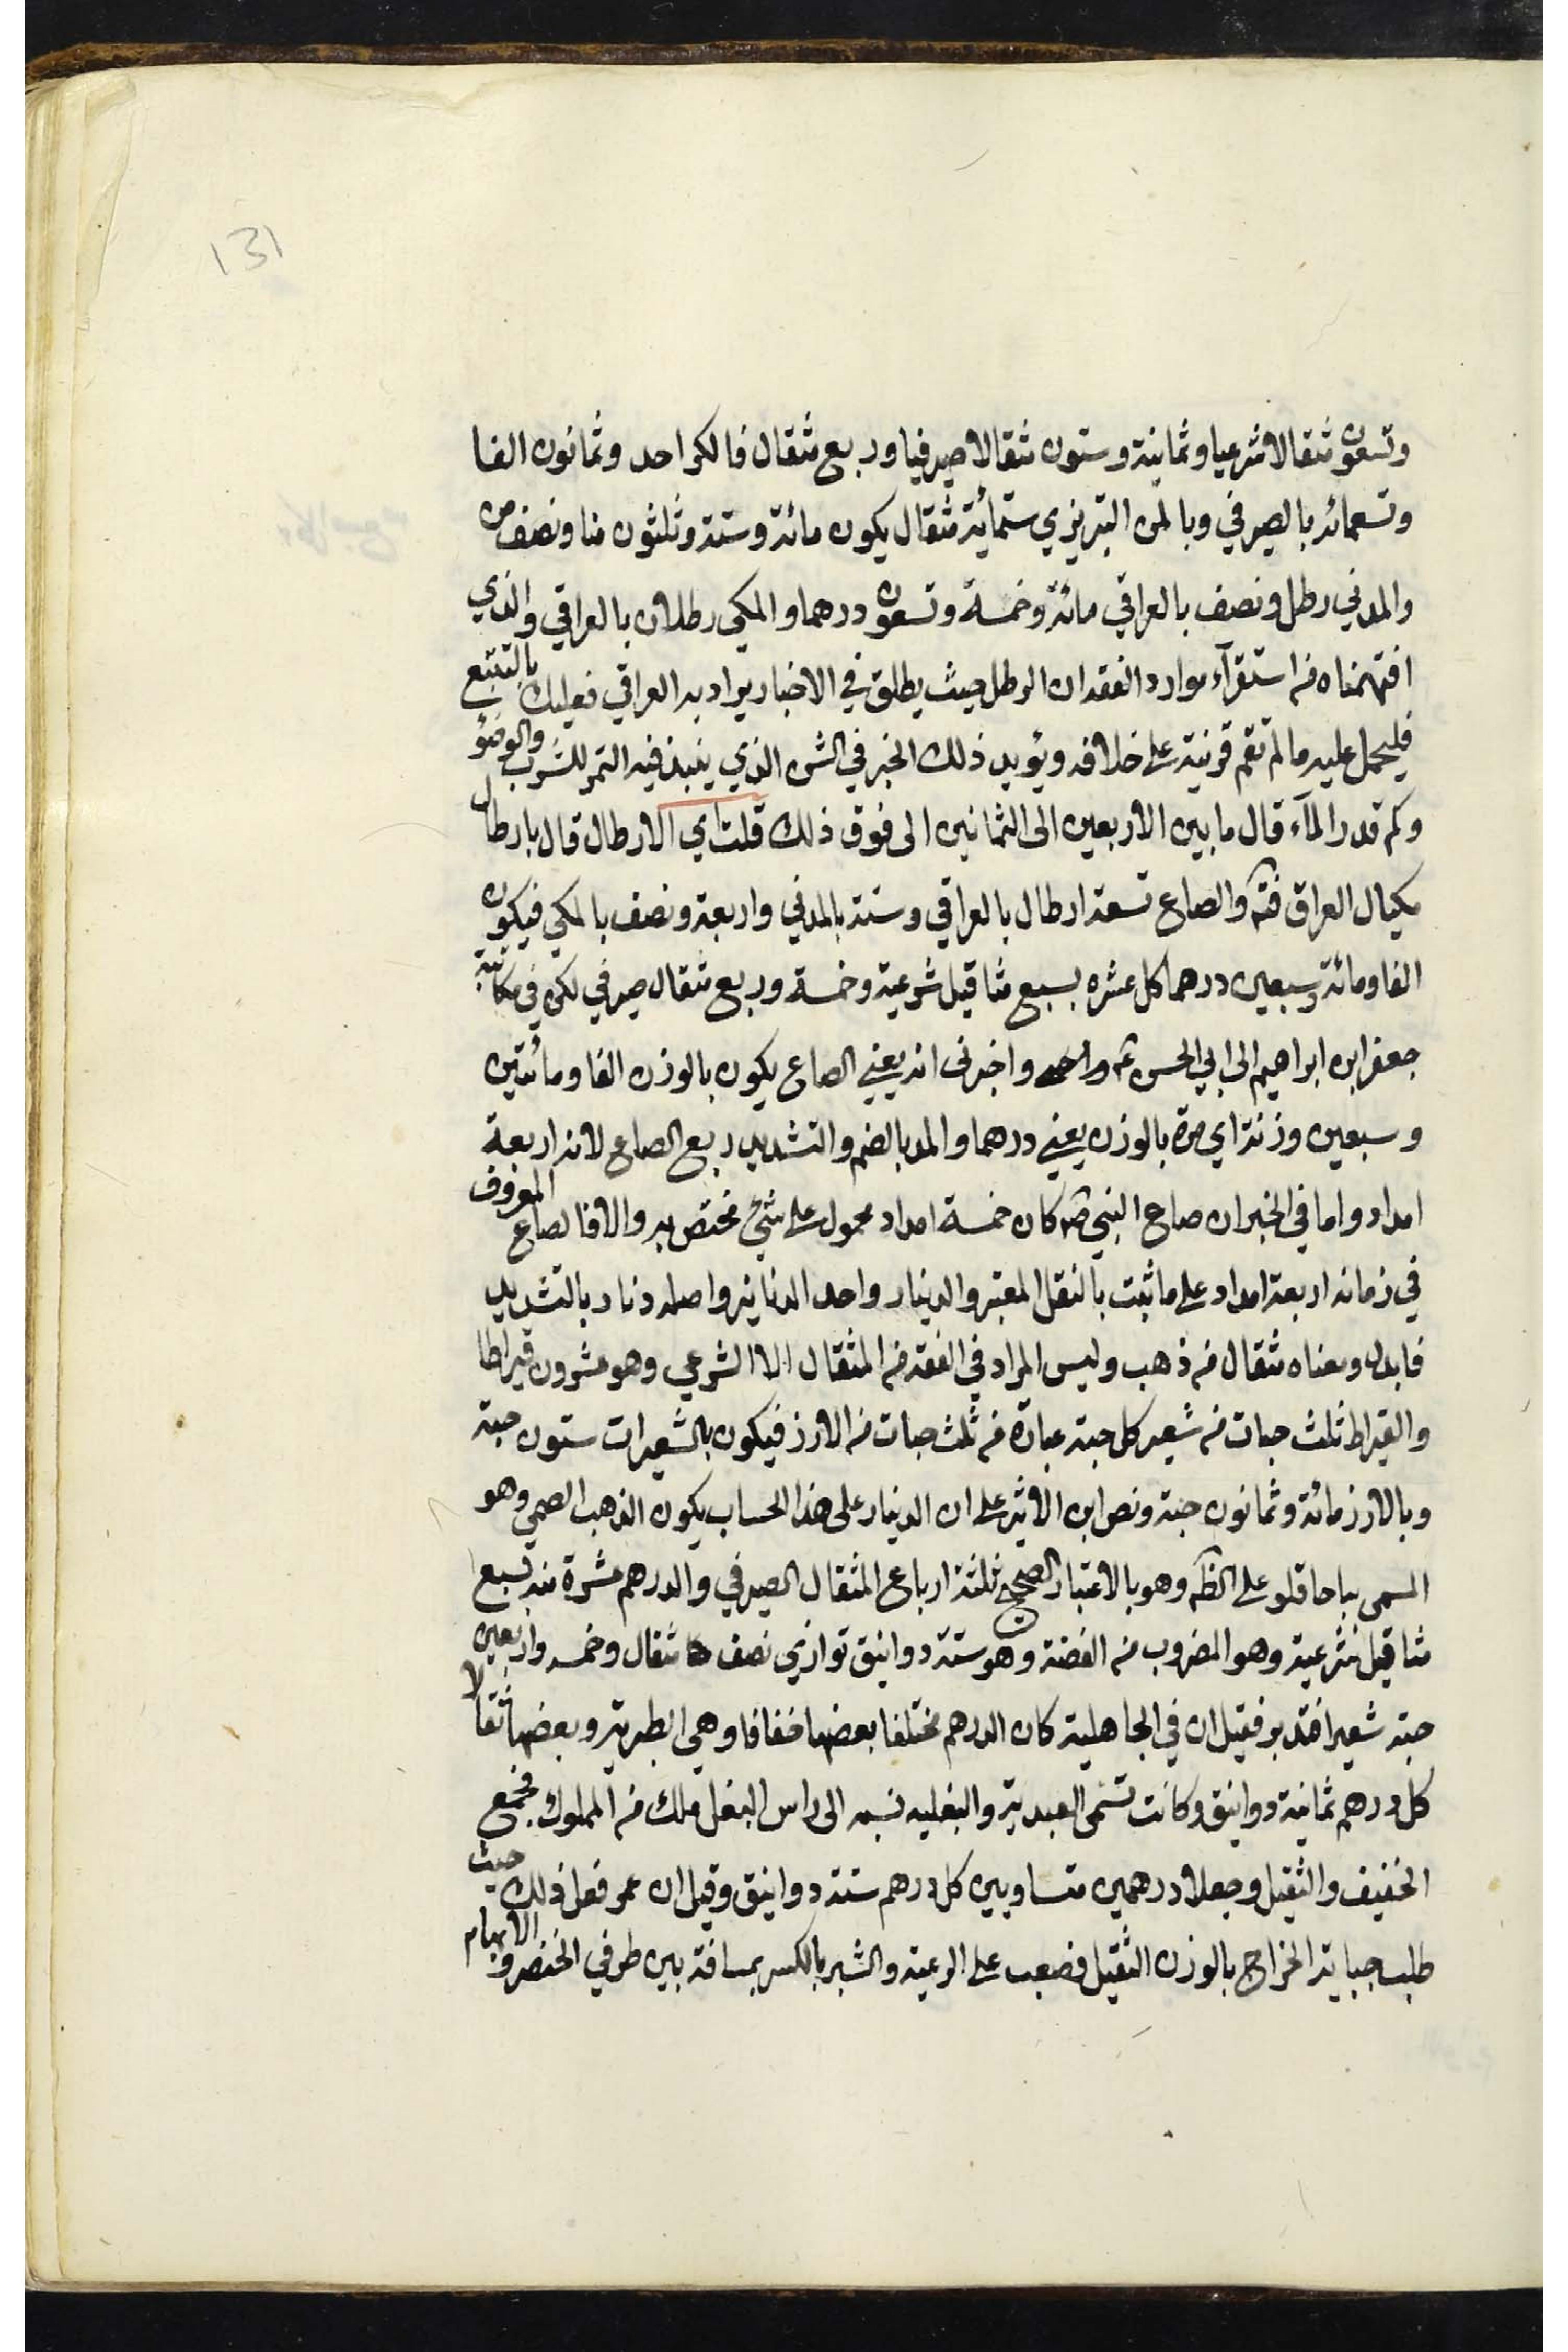 131
وتسعون مثقالا شرعيا وثمانية وستون مثقالا صيرفيا وربع مثقال فالكر احد وثمانون الفا
وتسعمائه بالصيرفي وبالمن التبريزي ستمائة مثقال يكون مائة وستة وثلثون منا ونصف من
والمدني رطل ونصف بالعراقي مائة وخمسة وتسعون درهما والمكي رطلان بالعراقي والذي
افتهمناه من استقرآء موارد الفقه ان الرطل حيث يطلق في الاخبار يراد به العراقي فعليك بالتتبع
فليحمل عليه مالم تقم قرينة على خلافه ويؤيد ذلك الخبر في الشن الذي ينبذ فيه التمر للشرب والوضؤ
وكم قدر المآء قال ما بين الاربعين الى الثمانين الى فوق ذلك قلت اي الارطال قال بارطال
مكيال العراق فتم والصاع تسعة ارطال بالعراقي وستة بالمدني واربعة ونصف بالمكي فيكون
الفا ومائة وسبعين درهما كل عشره بسبع مثاقيل شرعية وخمسة وربع مثقال صيرفي لكن في مكاتبة
جعفر ابن ابراهيم الى ابي الحسن ع واخبرنى انه يعني الصاع يكون بالوزن الفا ومائتين
وسبعين وزنة اي مرة بالوزن يعني درهما والمد بالضم والتشديد ربع الصاع لانه اربعة
امداد واما في الخبر ان صاع النبي ص كان خمسة امداد محمول على شئ مختص به والا فالصاع المعروف
في زمانه اربعة امداد على ما ثبت بالنقل المعتبر والدينار واحد الدنانير واصله دنار بالتشديد
فابدل ومعناه مثقال من ذهب وليس المراد في الفقه من المثقال الا الشرعي وهو عشرون قيراطا
والقيراط ثلث حبات من شعير كل حبة عبارة من ثلث حبات من الارز فيكون بالشعيرات ستون حبة
وبالارز مائة وثمانون حبة ونص ابن الاثير على ان الدينار على هذا الحساب يكون الذهب الصمي وهو
المسمى بباحاقلو على الظ وهو بالاعتبار الصحيح ثلثة ارباع المثقال الصيرفي والدرهم عشرة منه بسبع
مثاقيل شرعية وهو المضروب من الفضة وهو ستة دوانيق توازي نصف مثقال وخمسه واربعين
حبة شعير افتدبر فقيل ان في الجاهلية كان الدرهم مختلفا بعضها خفافا وهي الطبرية وبعضها ثقالا
كل درهم ثمانية دوانيق وكانت تسمى العبدية والبغليه نسبه الى راس البغل ملك من الملوك فجمع
الخفيف والثقيل وجعلا درهمين متساويين كل درهم ستة دوانيق وقيل ان عمر فعل ذلك حيث
طلب جباية الخراج بالوزن الثقيل فصعب على الرعية والشبر بالكسر مسافة بين طرفي الخنصر والابهام